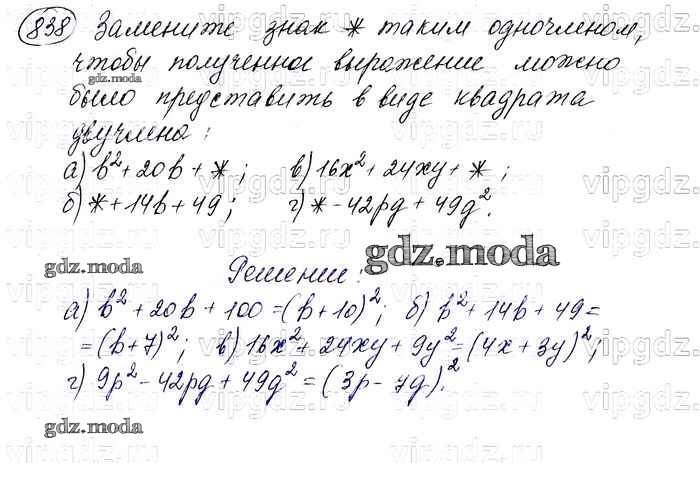 838 Замените знак * таким одночленом,
чтобы полученное выражение можно
было представить в виде квадрата
двучлена:
а) b² + 20b + *; в) 16x² + 24xy + *;
б) * + 14b + 49; г) * - 42pq + 49q².
Решение:
а) b² + 20b + 100 = (b + 10)²; б) b² + 14b + 49 =
= (b + 7)²; в) 16x² + 24xy + 9y² = (4x + 3y)²;
г) 9p² - 42pq + 49q² = (3p - 7q)².
gdz.moda
gdz.moda
gdz.moda
gdz.moda
gdz.moda
vipgdz.ru